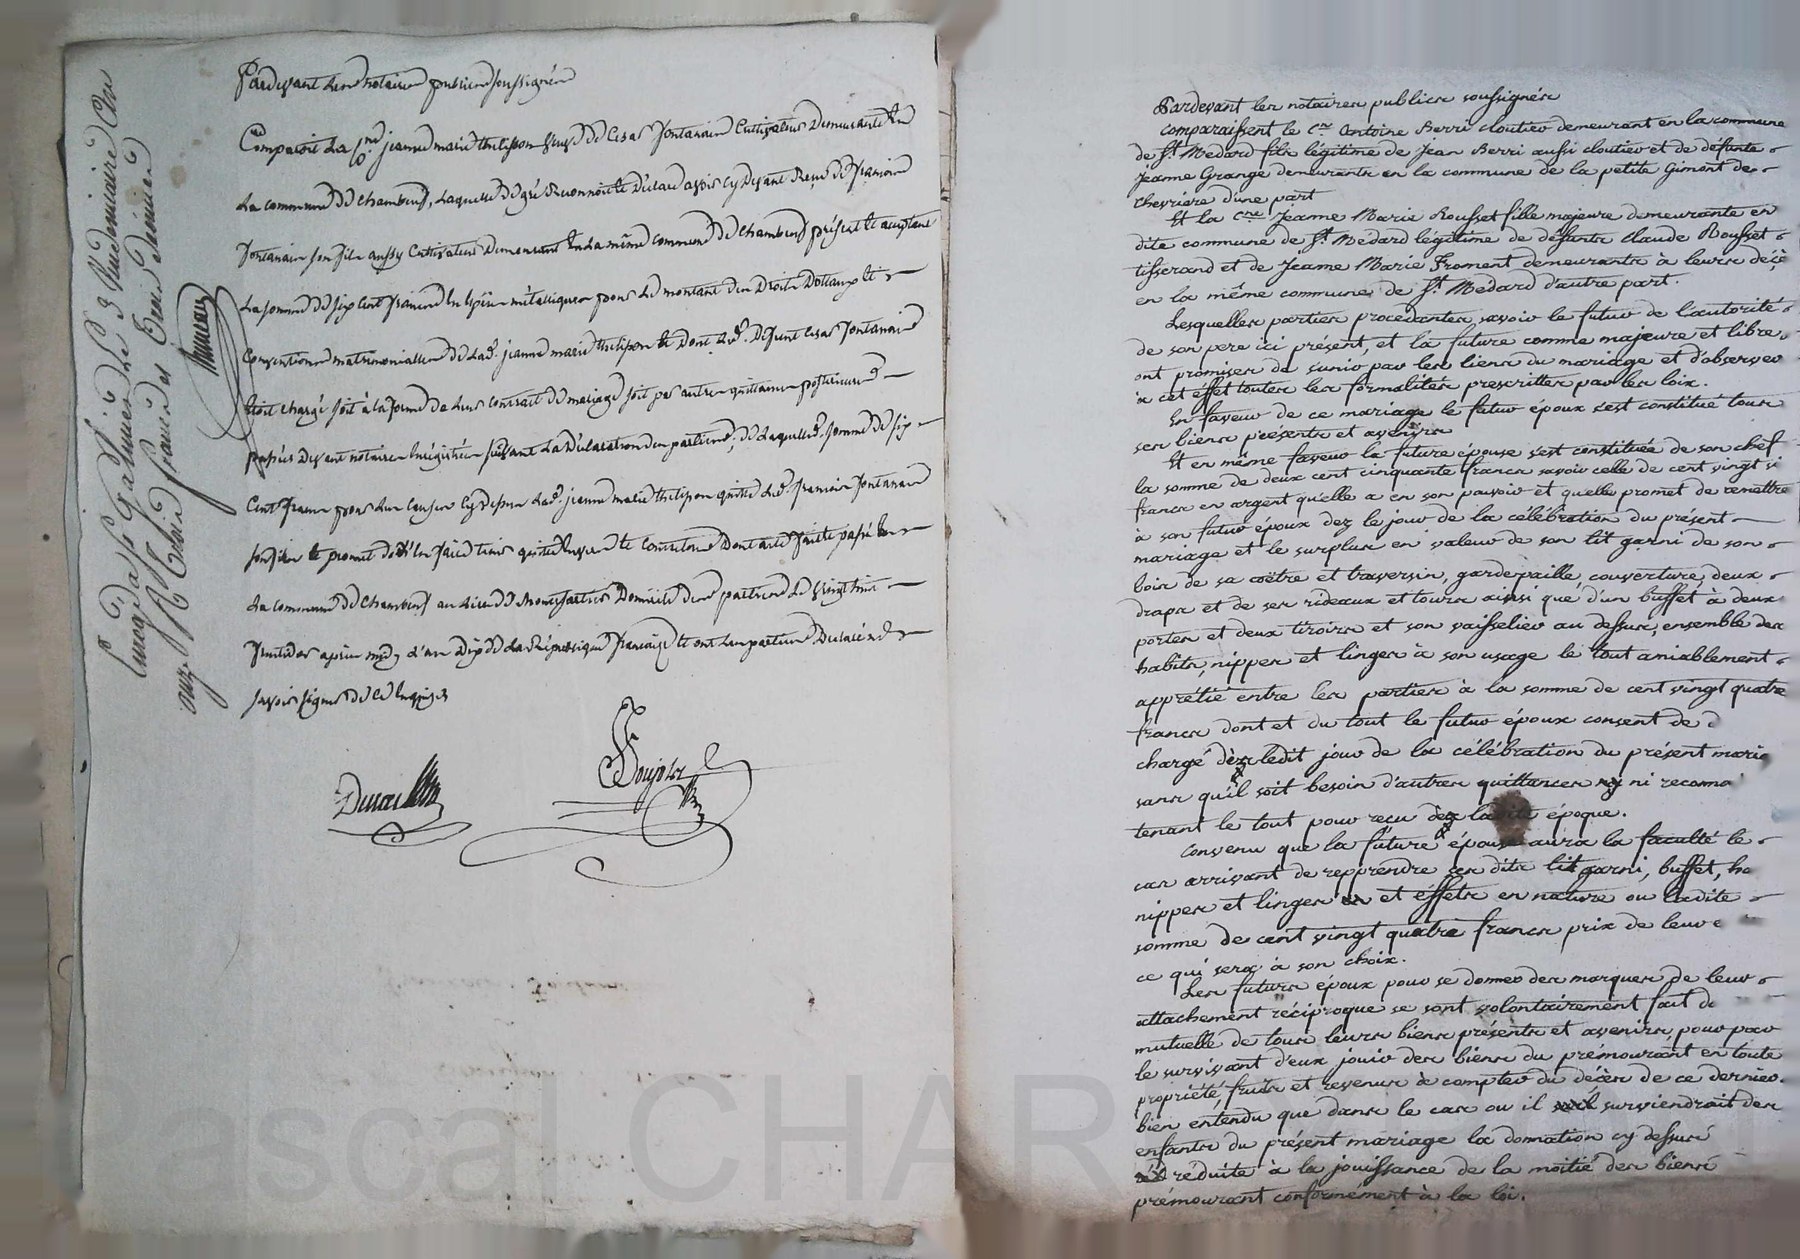 Pardevant les notaires publics soussignés
Comparoit la C.ne jeanne marie thelisson veuve de Cesar fontanain Cultivateur Demeurante En
La commune de chambeuf, Laquelle de gré Reconnoit et Déclare avoir cy devant Reçu de françois
fontanain son fils aussy Cultivateur demeurant En La même commune de chambeuf présent et acceptant
La somme de six cent francs En Espèces métalliques pour le montant des Droits Dottaux et
Conventions matrimonialles de lad. jeanne marie thelisson et Dont led. Défunt Cesar fontanain
étoit chargé soit à la forme de leur Contract de mariage soit par autres quittances postérieures
passées devant notaires Enregistrées suivant La Déclaration des parties; de Laquelle somme de six
Cent francs pour les causes cy dessus lad. jeanne marie thelisson quitte led. françois fontanain
son fils et promet de l'en faire tenir quitte Envers et contre tous Dont acte fait et passé En
La commune de chambeuf au Lieu de Domicile des parties Le vingt huit
fructidor après midy L'an Dix de La République française et ont Les parties Déclaré ne
savoir signer de ce Enquises
Enregistré à St Galmier Le 3 Vendémiaire an
onze R Un franc dix centimes
Pardevant les notaires publics soussignés
comparaissent le C.en Antoine Berri cloutier demeurant en la commune
de St Medard fils légitime de Jean Berri aussi cloutier et de défunte
Jeanne Grange demeurants en la commune de la petite Gimont de
chevrière d'une part
Et la C.ne Jeanne Marie Rousset fille majeure demeurante en
dite commune de St Medard légitime de défunts Claude Rousset
tisserand et de Jeanne Marie Froment demeurants à leurs décè
en la même commune de St Medard d'autre part.
Lesquelles parties procédantes savoir le futur de l'autorité
de son pere ici présent, et la future comme majeure et libre,
ont promises de s'unir par les liens du mariage et d'observer
à cet effet toutes les formalités prescrittes par les loix.
En faveur de ce mariage le futur époux s'est constitué tous
ses biens présents et avenirs
Et en même faveur la future épouse s'est constituée de son chef
la somme de deux cent cinquante francs savoir celle de cent vingt si
francs en argent qu'elle a en son pouvoir et qu'elle promet de remettre
à son futur époux dez le jour de la célébration du présent
mariage et le surplus en valeur de son lit garni de son
bois de sa coëtre et traversin, gardepaille, couverture, deux
draps et de ses rideaux et tours ainsi que d'un buffet à deux
portes et deux tiroirs et son vaisselier au dessus, ensemble des
habits, nippes et linges à son usage le tout amiablement
apprétié entre les parties à la somme de cent vingt quatre
francs dont et du tout le futur époux consent de d
chargé dès ledit jour de la célébration du présent maria
sans qu'il soit besoin d'autres quittances ni reconna
tenant le tout pour reçu dez ladite époque.
Convenu que la future épouse aura la faculté le
cas arrivant de repprendre ses dits lit garni, buffet, ha
nippes et linges et effets en nature ou ladite
somme de cent vingt quatre francs prix de leur e
ce qui sera à son choix.
Les futurs époux pour se donner des marques de leur
attachement réciproque se sont volontairement fait do
mutuelle de tous leurs biens présents et avenirs, pour par
le survivant d'eux jouir des biens du prémourant en toute
propriété, fruits et revenus à compter du décès de ce dernier.
bien entendu que dans le cas ou il surviendrait des
enfants du présent mariage la donnation cy dessus
réduite à la jouissance de la moitié des biens
prémourant conformément à la loi.